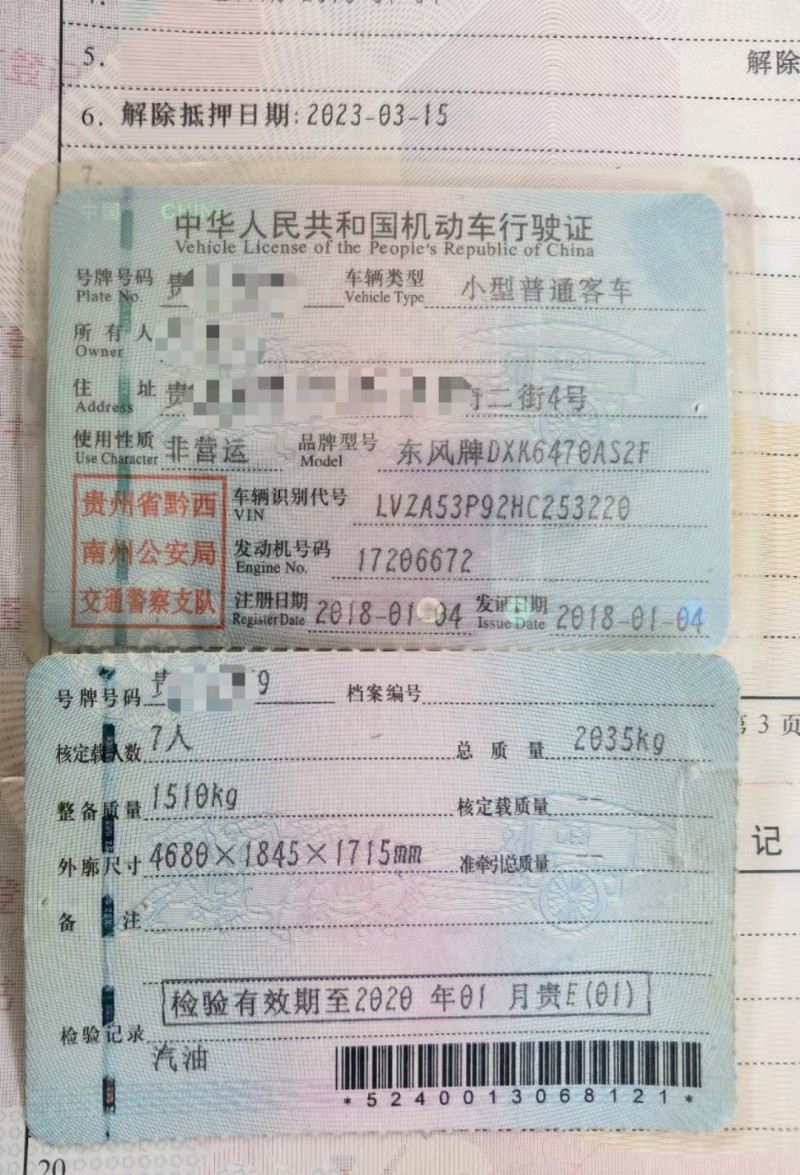 5.
解除
6. 解除抵押日期:2023-03-15
7.
中国 CHINA
中华人民共和国机动车行驶证
Vehicle License of the People's Republic of China
号牌号码 贵 车辆类型 小型普通客车
Plate No. Vehicle Type
所有人
Owner
住址 贵 街二街4号
Address
使用性质 非营运 品牌型号 东风牌DXK6470AS2F
Use Character Model
贵州省黔西
南州公安局
交通警察支队
车辆识别代号 LVZA53P92HC253220
VIN
发动机号码 17206672
Engine No.
注册日期 2018-01-04 发证日期 2018-01-04
Register Date Issue Date
号牌号码 贵 9 档案编号
第3页
核定载人数 7人 总质量 2035kg
整备质量 1510kg 核定载质量 --
记
外廓尺寸 4680×1845×1715mm 准牵引总质量 --
备注
检验有效期至2020 年01 月贵E(01)
检验记录
汽油
*5240013068121*
20